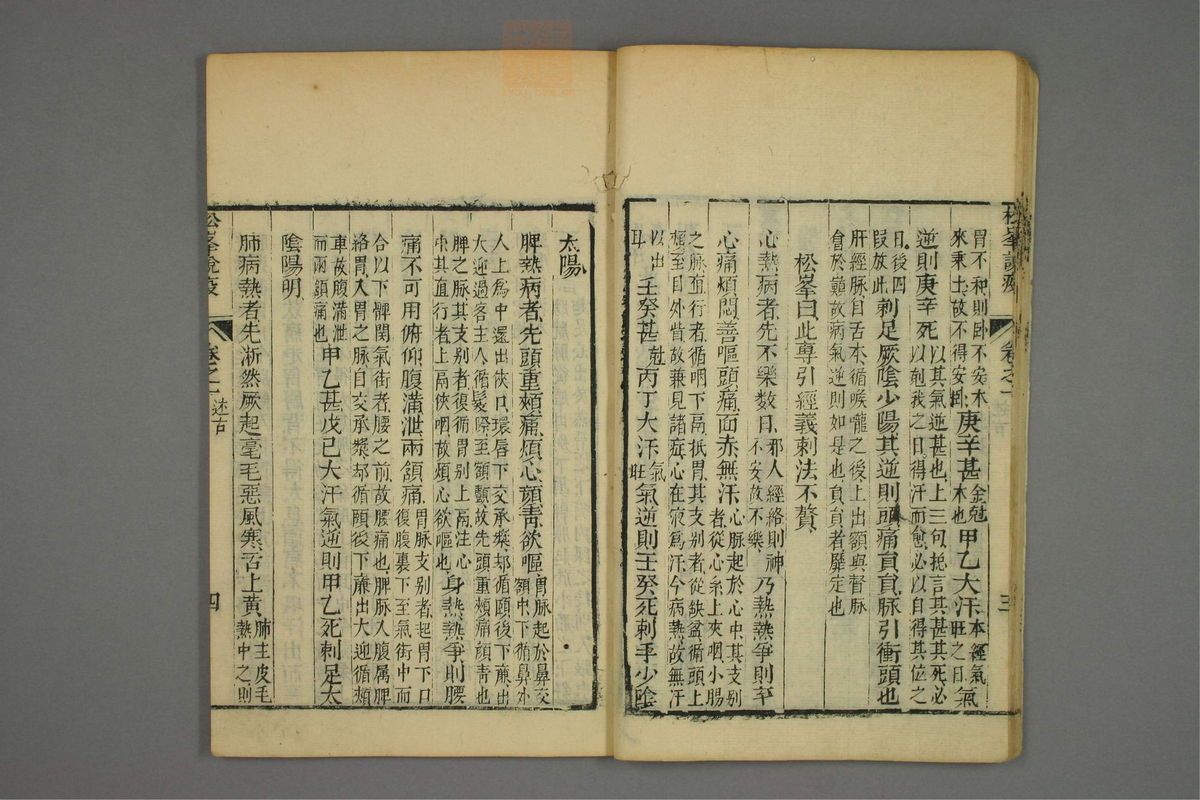 松峯說疫
卷之一
三
胃不和則卧不安木來乘土故不得安卧庚辛甚金尅木也甲乙大汗本經氣旺之日氣
逆則庚辛死以其氣逆甚也上三句摠言其甚其死必以尅我之日得汗而愈必以自得其位之
日後四叚放此刺足厥陰少陽其逆則頭痛貟貟脉引衝頭也
肝經脉自舌本循喉嚨之後上出額與督脉會於巔故病氣逆則如是也貟貟者靡定也
松峯曰此專引經義刺法不贅
心熱病者先不樂数日邪人經絡則神不安故不樂乃熱熱爭則卒
心痛煩悶善嘔頭痛面赤無汗心脉起於心中其支别者從心系上夾咽小腸
之脉直行者循咽下膈抵胃其支别者從缺盆循頭上頰至目外眥故兼見諸症心在液爲汗今病熱故無汗
以出耳壬癸甚尅丙丁大汗氣旺氣逆則壬癸死刺手少陰
太陽
脾熱病者先頭重頰痛煩心顔靑欲嘔胃脉起於鼻交額中下循鼻外
人上齒中還出俠口環唇下交承漿却循頤後下廉出大迎過客主人循髮際至額顱故先頭重頰痛顔靑也
脾之脉其支别者復循胃别上膈注心中其直行者上膈俠咽故煩心欲嘔也身熱熱爭則腰
痛不可用俯仰腹滿泄兩頷痛胃脉支别者起胃下口循腹裏下至氣街中而
合以下髀関氣街者腰之前故腰痛也脾脉入腹属脾絡胃入胃之脉自交承漿却循頤後下廉出大迎循頰
車故腹滿泄而兩頷痛也甲乙甚戊己大汗氣逆則甲乙死刺足太
陰陽明
肺病熱者先淅然厥起毫毛惡風寒舌上黄肺主皮毛熱中之則
松峯說疫
卷之一
述古
四